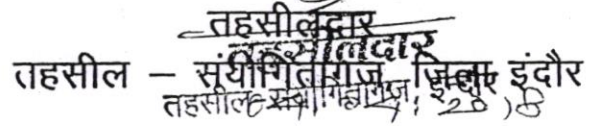 तहसीलदार
तहसीलदार
तहसील – संयोगितागंज, जिला इंदौर
तहसील संयोगितागंज, इन्दौर